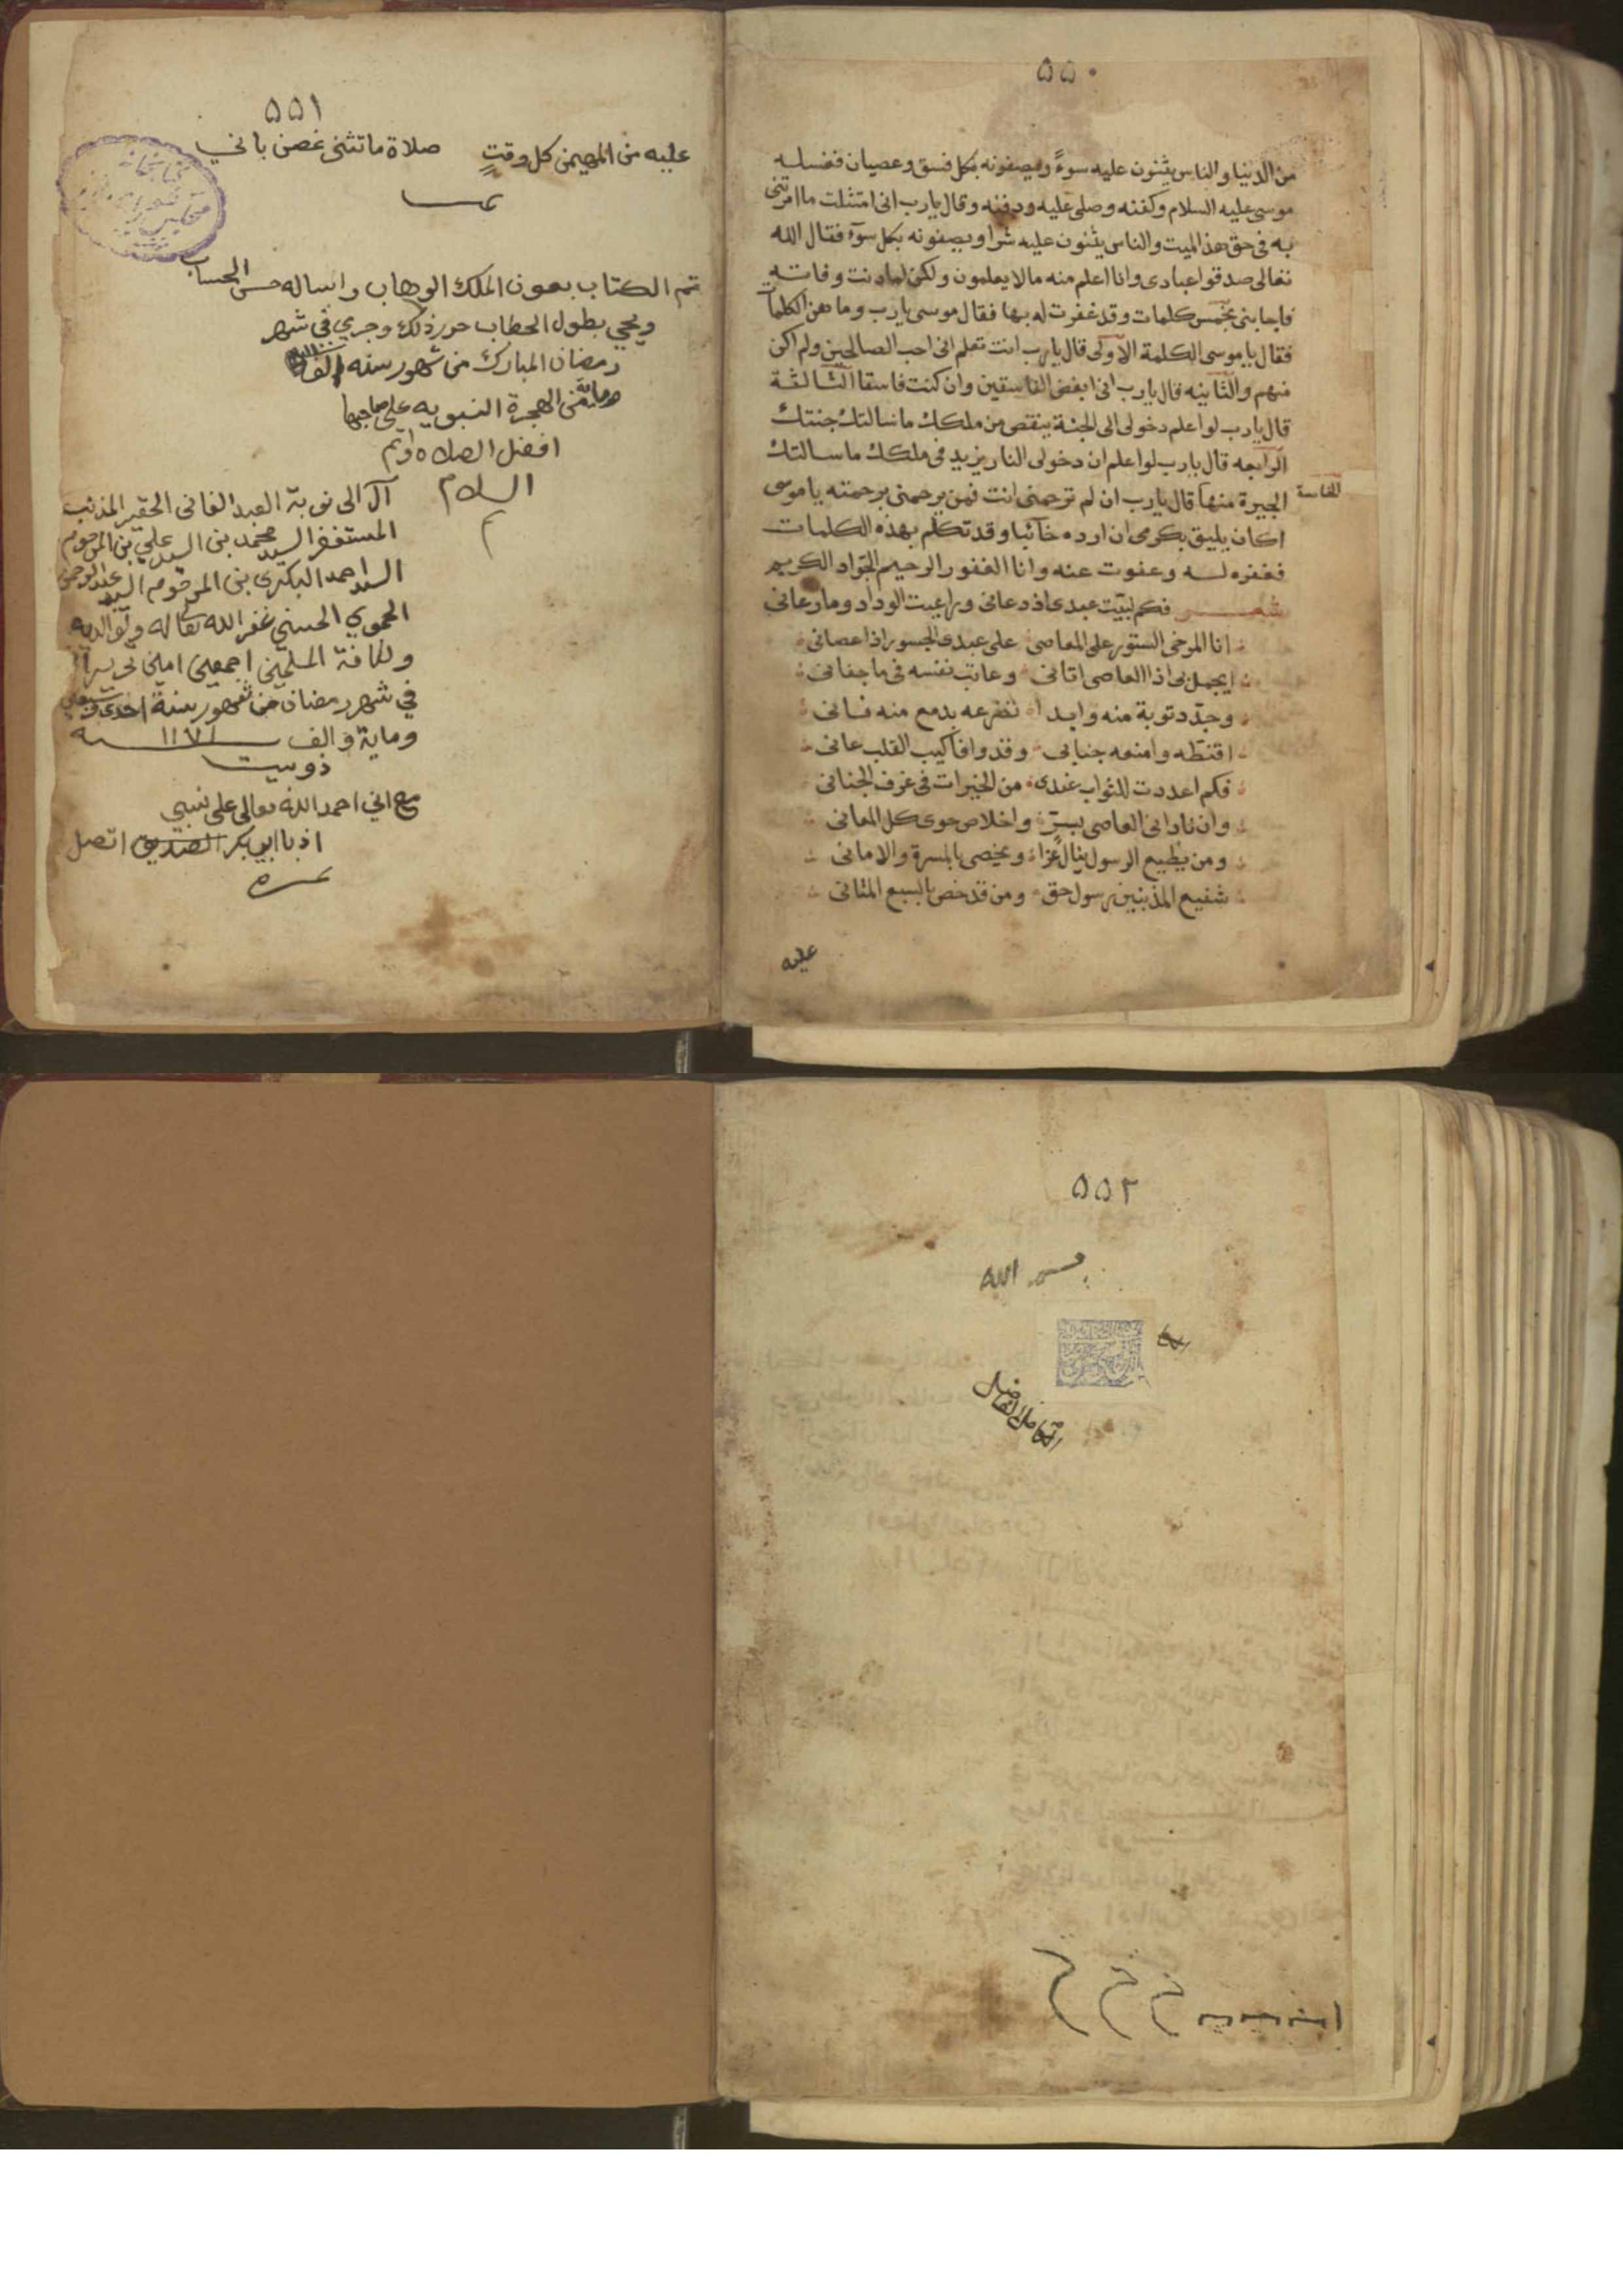 ٥٥٠
من الدنيا والناس يثنون عليه سوءً ويصفونه بكل فسق وعصيان فغسله
موسى عليه السلام وكفنه وصلى عليه ودفنه وقال يارب انى امتثلت ما امرتنى
به فى حق هذا الميت والناس يثنون عليه شرا ويصفونه بكل سوء فقال الله
تعالى صدقوا عبادى وانا اعلم منه مالا يعلمون ولكن لما دنت وفاته
فاجابنى بخمس كلمات وقد غفرت له بها فقال موسى يارب وما هذه الكلمات
فقال ياموسى الكلمة الاولى قال يارب انت تعلم انى احب الصالحين ولم اكن
منهم والثانيه قال يارب انى ابغض الفاسقين وان كنت فاسقا الثالثة
قال يارب لو اعلم دخولى الى الجنة ينقص من ملكك ما سالتك جنتك
الرابعه قال يارب لو اعلم ان دخولى النار يزيد فى ملكك ما سالتك
الجيرة منها قال يارب ان لم ترحمنى انت فمن يرحمنى برحمته ياموسى
الخامسة
اكان يليق بكرمى ان ارده خآئبا وقد تكلم بهذه الكلمات
فغفره له وعفوت عنه وانا الغفور الرحيم الجواد الكريم
شعر فكم لبيت عبدى اذ دعانى وراعيت الوداد وما رعانى
انا المرخى الستور على المعاصى على عبدى الجسور اذا عصانى
ايجمل بى اذا العاصى اتانى وعاتب نفسه فى ما جفانى
وجدد توبة منه وابدا تضرعه بدمع منه فانى
اقنطه وامنعه جنابى وقد وافا كيب القلب عانى
فكم اعددت للثواب عندى من الخيرات فى غرف الجنانى
وان نادانى العاصى بسرّ واخلاص حوى كل المعانى
ومن يطيع الرسول ينال عزا ويخصى بالمسرة والامانى
شفيع المذنبين رسول حق ومن قد خص بالسبع المثانى
عليه
٥٥١
عليه من المهيمن كل وقتٍ صلاة ما تثنى غصن باني
تم الكتاب بعون الملك الوهاب واساله حسن الحساب
وجري في شهر
رمضان المبارك من شهور سنه الف
وماية من الهجرة النبويه على صاحبها
افضل الصلاه واتم
السلام
آل الى نوبة العبد الفاني الحقير المذنب
المستغفر السيد محمد بن السيد علي بن المرحوم
السيد احمد البكرى بن المرحوم السيد عبد الرحمن
الحموي الحسيني غفر الله تعالى له ولوالديه
ولكافة المسلمين اجمعين امين تحريرا
في شهر رمضان من شهور سنة احدى وسبعين
وماية والف ١١٧١ سنه
ذو بيت
مع اني احمد الله تعالى على نسبي
اذ بابي بكر الصديق اتصل
٥٥٢
بسم الله
الكامل الفاضل